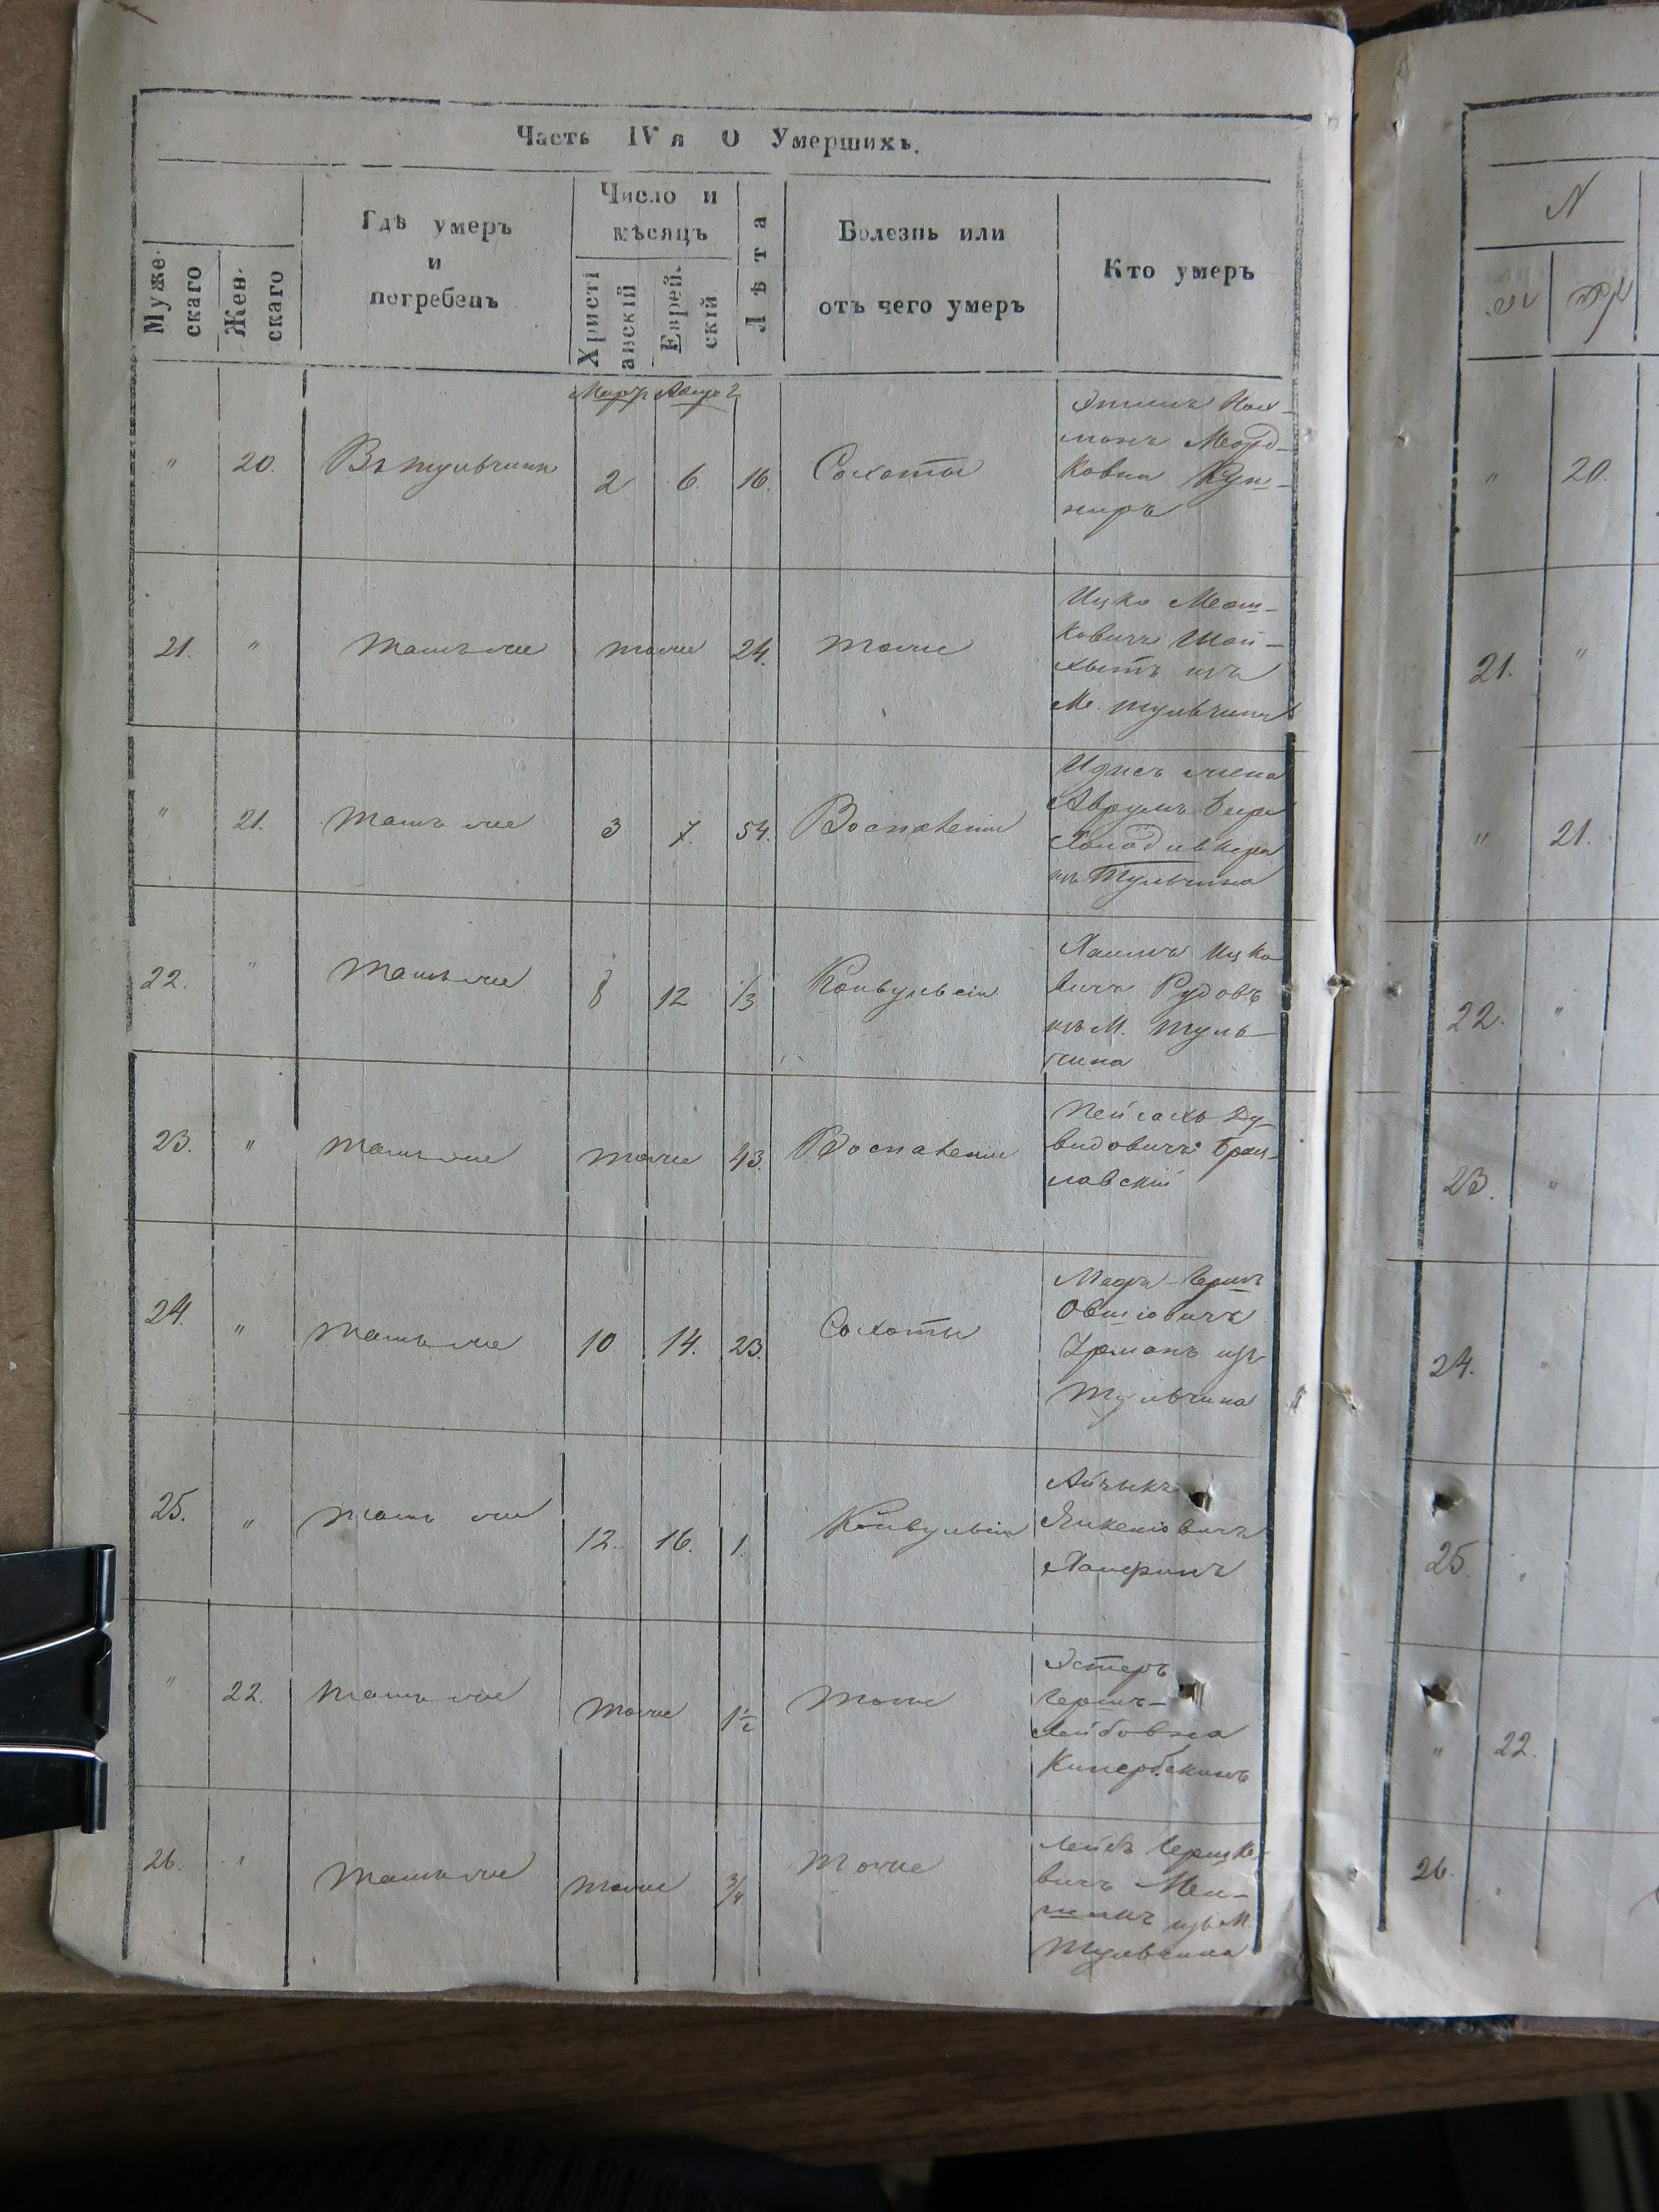 Часть IVя О Умершихъ.
Муже-
скаго
Жен-
скаго
Гдѣ умеръ
и
погребенъ
Число и
мѣсяцъ
Христі
анскій
Еврей-
скій
Лѣта
Болезнь или
отъ чего умеръ
Кто умеръ
Март
" 20. Въ Тульчинѣ 2 6. 16. Сохоты
Морд-
ковна Куш-
ниръ
21. " тамъ же тоже 24. тоже
Ицко Мош-
ковичъ Шой-
хытъ изъ
М. Тульчина
" 21. тамъ же 3 7. 54. Воспаленія
жена
Аврумъ Бера
изъ Тульчина
22. " тамъ же 8 12 1/3 Конвульсіи
Хаимъ Ицко
вичъ Рудовъ
изъ М. Туль-
чина
23. " тамъ же тоже 43. Воспаленія
Пейсахъ Ду-
видовичъ Брац-
лавскій
24. " тамъ же 10 14. 23. Сохоты
Овшіовичъ
Урманъ изъ
Тульчина
25. " тамъ же 12. 16. 1. Конвульсіи
Айзыкъ
Янкеліовичъ
" 22. тамъ же тоже 1½ тоже
Эстеръ
Гершъ-
Лейбовна
26. " тамъ же тоже 3/4. тоже
Лейбъ Гершко-
вичъ
изъ М.
Тульчина
N
" 20.
21. "
" 21.
22. "
23. "
24. "
25. "
" 22.
26. "